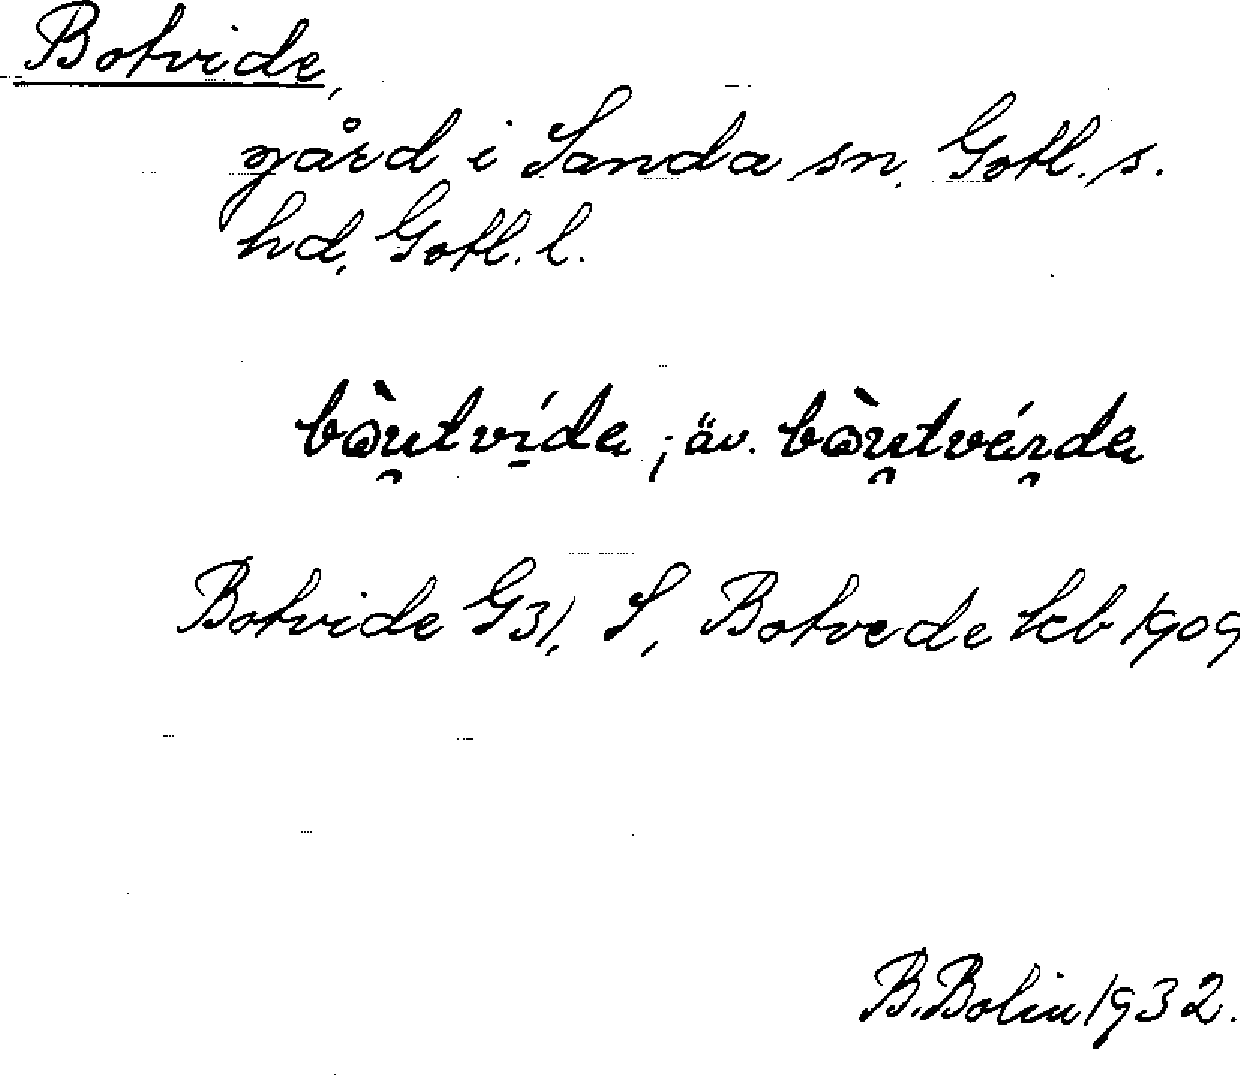 Botvide,
gård i Sanda sn, Gotl. s.
hd, Gotl. l.
bòu̯tvı́da, äv. bòu̯tvéı̯da
Botvide G31, S, Botvede kb 1909
B. Bolin 1932.